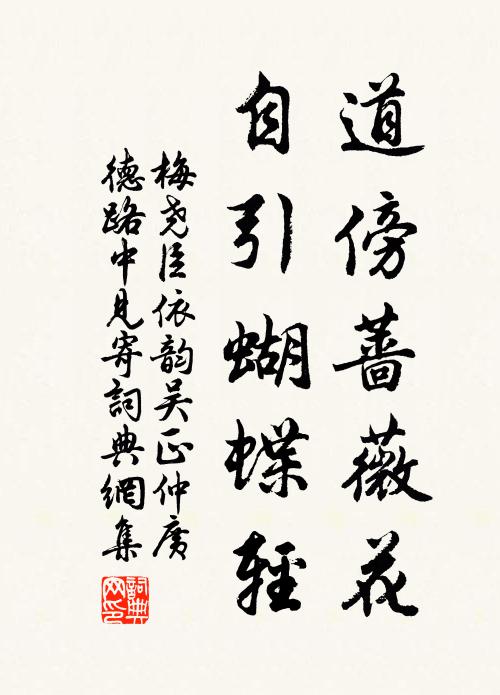 道傍薔薇花
自引蝴蝶輕
梅堯臣依韵吴正仲廣
德路中見寄詞典網集
詞典網印